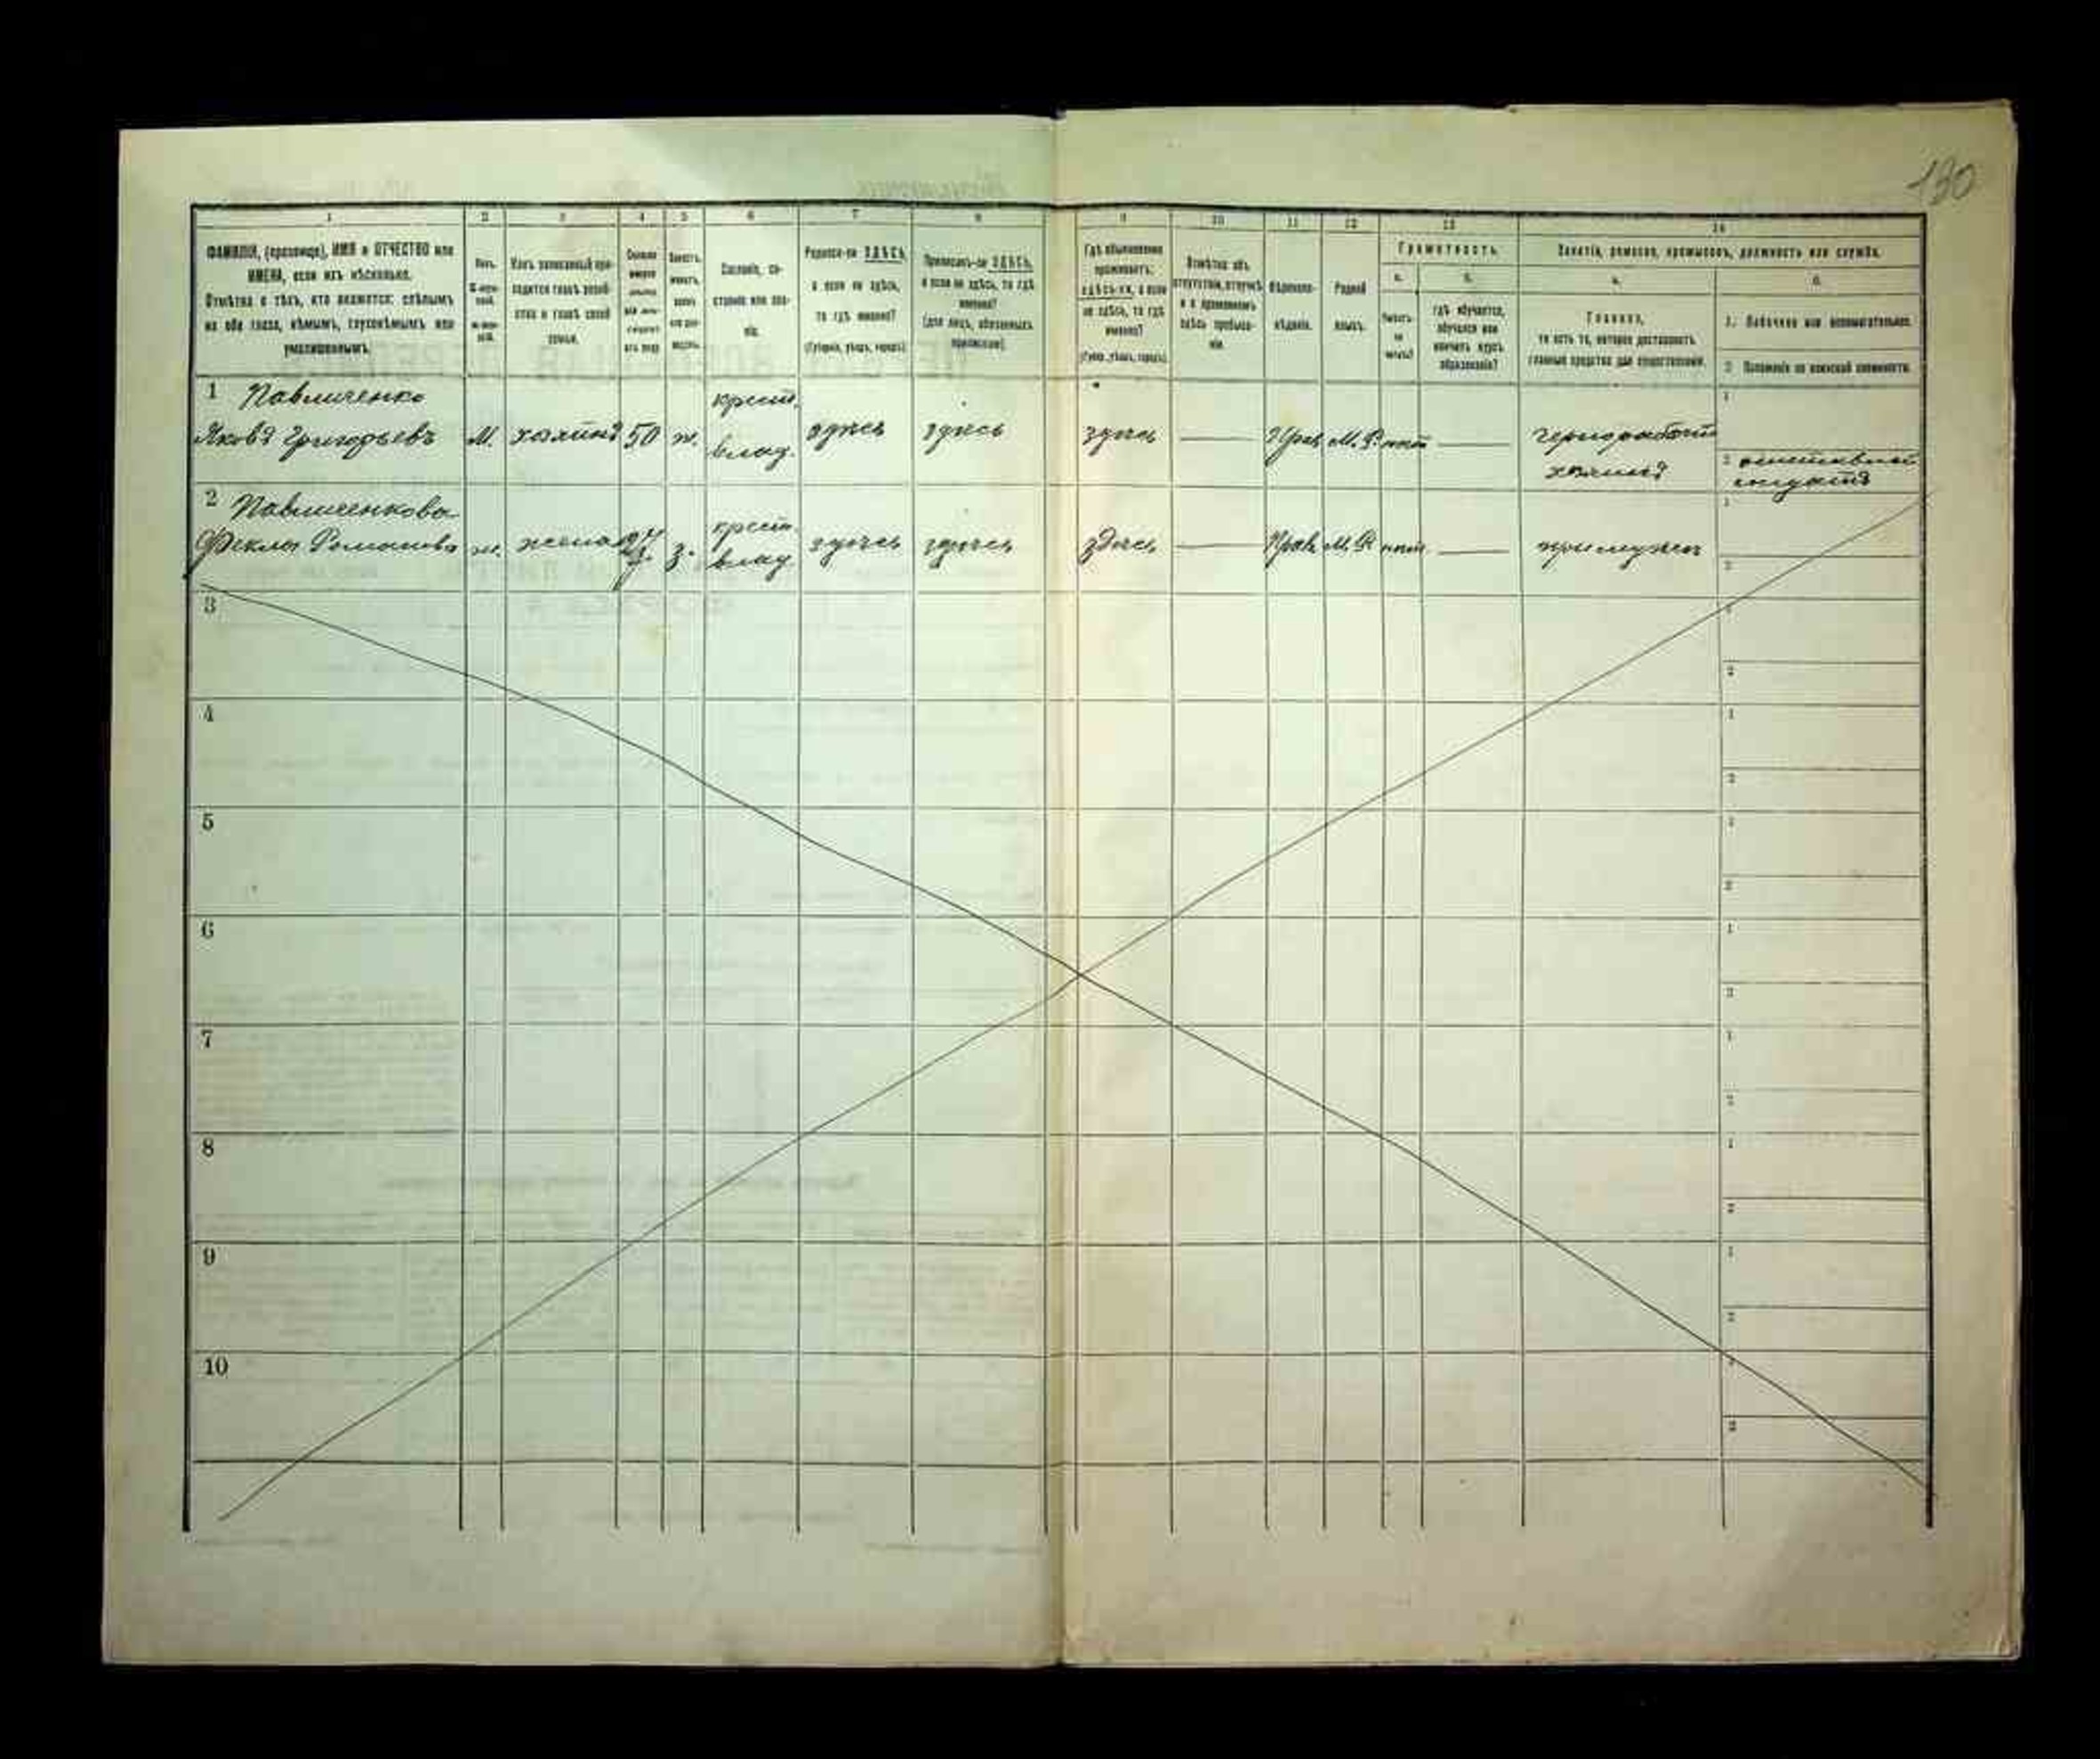 130
1 2 3 4 5 6 7 8 9 10 11 12 13 14
ФАМИЛІЯ, (прозвище), ИМЯ и ОТЧЕСТВО или
ИМЕНА, если ихъ нѣсколько.
Отмѣтка о тѣхъ, кто окажется: слѣпымъ
на оба глаза, нѣмымъ, глухонѣмымъ или
умалишеннымъ.
Какъ записанный при-
ходится главѣ хозяй-
ства и главѣ своей
семьи.
Сословіе, со-
стояніе или зва-
ніе.
Родился-ли ЗДѢСЬ,
а если не здѣсь,
то гдѣ именно?
(Губернія, уѣздъ, городъ)
Приписанъ-ли ЗДѢСЬ,
а если не здѣсь, то гдѣ
именно?
(для лицъ, обязанныхъ
припискою)
Гдѣ обыкновенно
проживаетъ:
здѣсь-ли, а если
не здѣсь, то гдѣ
именно?
(Губер., уѣздъ, городъ)
Отмѣтка объ
отсутствіи, отлучкѣ
и о временномъ
здѣсь пребыва-
ніи.
Вѣроиспо-
вѣданіе.
Родной
языкъ.
Грамотность.
а.
б.
Умѣетъ-
ли
читать?
гдѣ обучается,
обучался или
кончилъ курсъ
образованія?
Занятіе, ремесло, промыселъ, должность или служба.
а.
Главное,
то есть то, которое доставляетъ
главныя средства для существованія.
б.
1. Побочное или вспомогательное.
2 Положеніе по воинской повинности.
1 Павличенко
Яковъ Григорьевъ М. хозяинъ 50 ж. крест. влад. здѣсь здѣсь здѣсь Прав М. Р. нѣтъ
хозяинъ
2 Павличенкова
Фекла Романова ж. жена 47 з. крест. влад здѣсь здѣсь здѣсь Прав М. Р нѣтъ при мужѣ
3
4
5
6
7
8
9
10